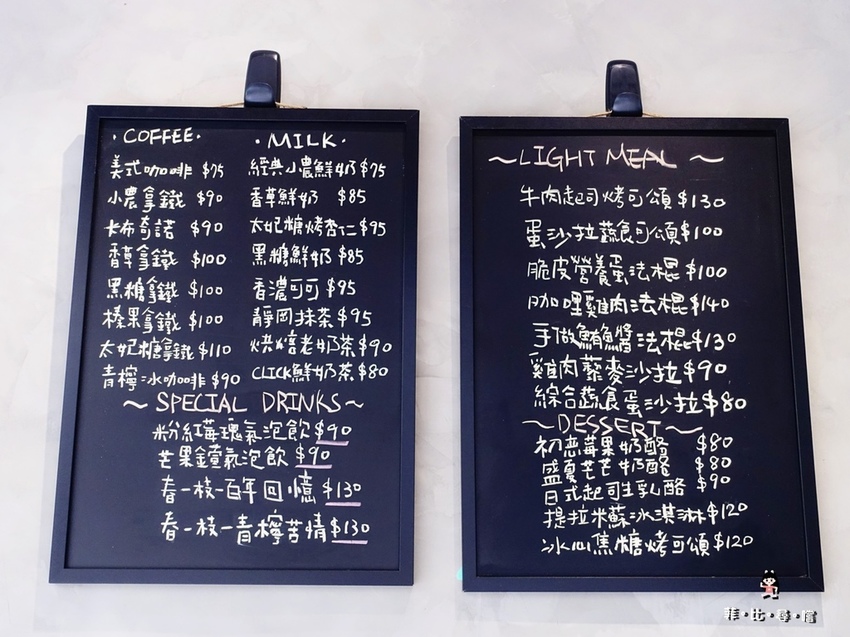 ·COFFEE·
美式咖啡 $75
小農拿鐵 $90
卡布奇諾 $90
香草拿鐵 $100
黑糖拿鐵 $100
榛果拿鐵 $100
太妃糖拿鐵 $110
青檸冰咖啡 $90
·MILK·
經典小農鮮奶 $75
香草鮮奶 $85
太妃糖烤杏仁 $95
黑糖鮮奶 $85
香濃可可 $95
靜岡抹茶 $95
焙焙老奶茶 $90
CLICK鮮奶茶 $80
~SPECIAL DRINKS~
粉紅莓瑰氣泡飲 $90
芒果鐘氣泡飲 $90
春一枝-百年回憶 $130
春一枝-青檸苦情 $130
~LIGHT MEAL~
牛肉起司烤可頌 $130
蛋沙拉蔬食可頌 $100
脆皮營養蛋法棍 $100
咖哩雞肉法棍 $140
手做鮪魚醬法棍 $130
雞肉藜麥沙拉 $90
綜合蔬食蛋沙拉 $80
~DESSERT~
初戀莓果奶酪 $80
盛夏芒芒奶酪 $80
日式起司生乳酪 $90
提拉米蘇冰淇淋 $120
冰心焦糖烤可頌 $120
菲·比·尋·常